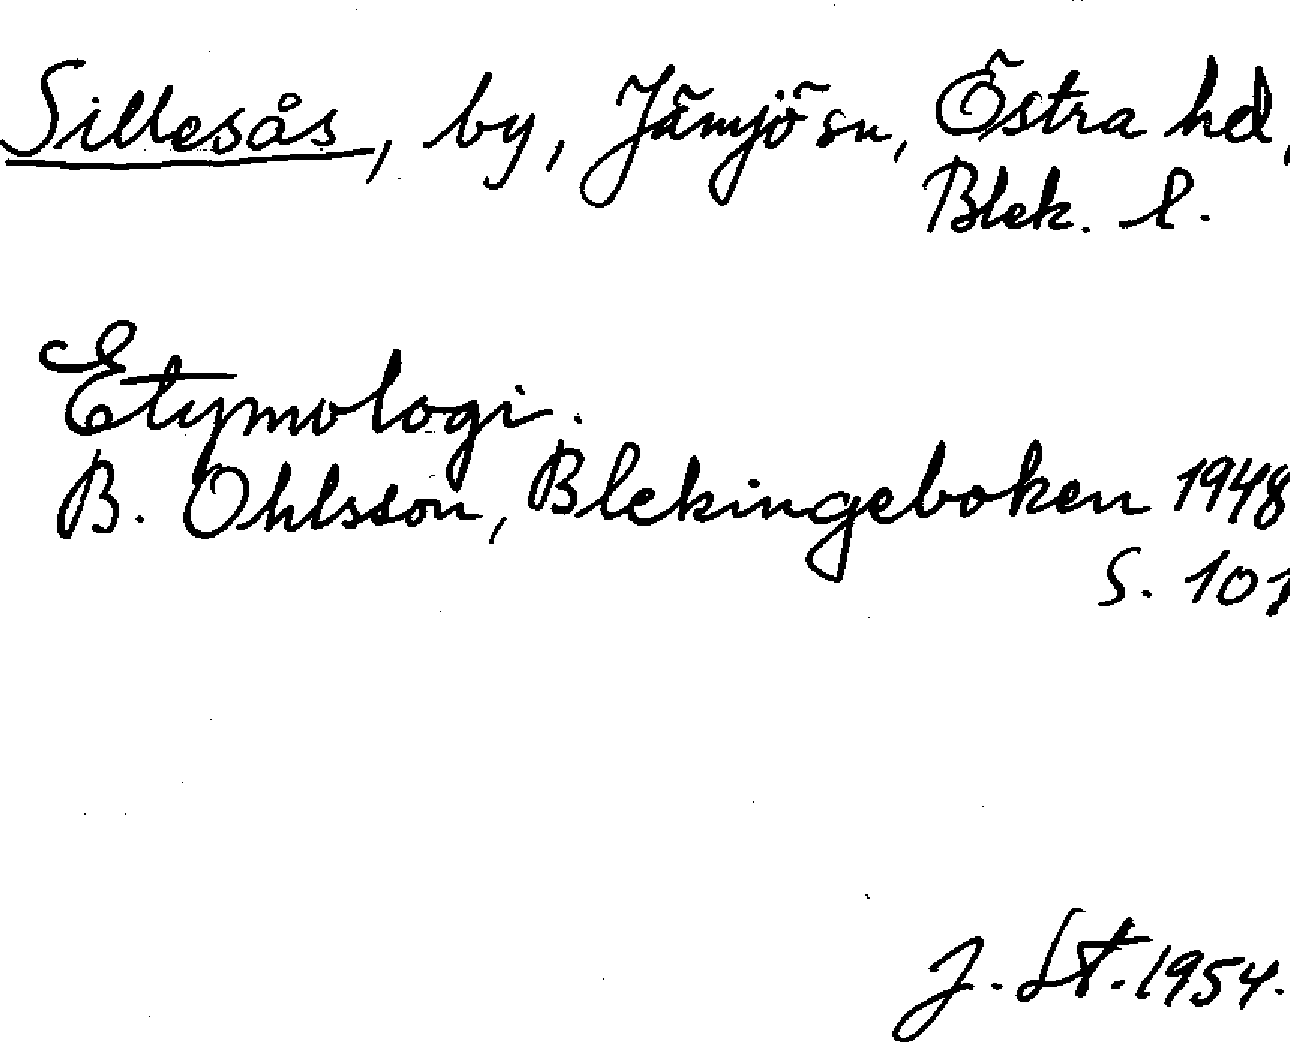 Sillesås, by, Jämjö sn, Östra hd,
Blek. l.
Etymologi.
B. Ohlsson, Blekingeboken 1948
S. 101
J. St. 1954.